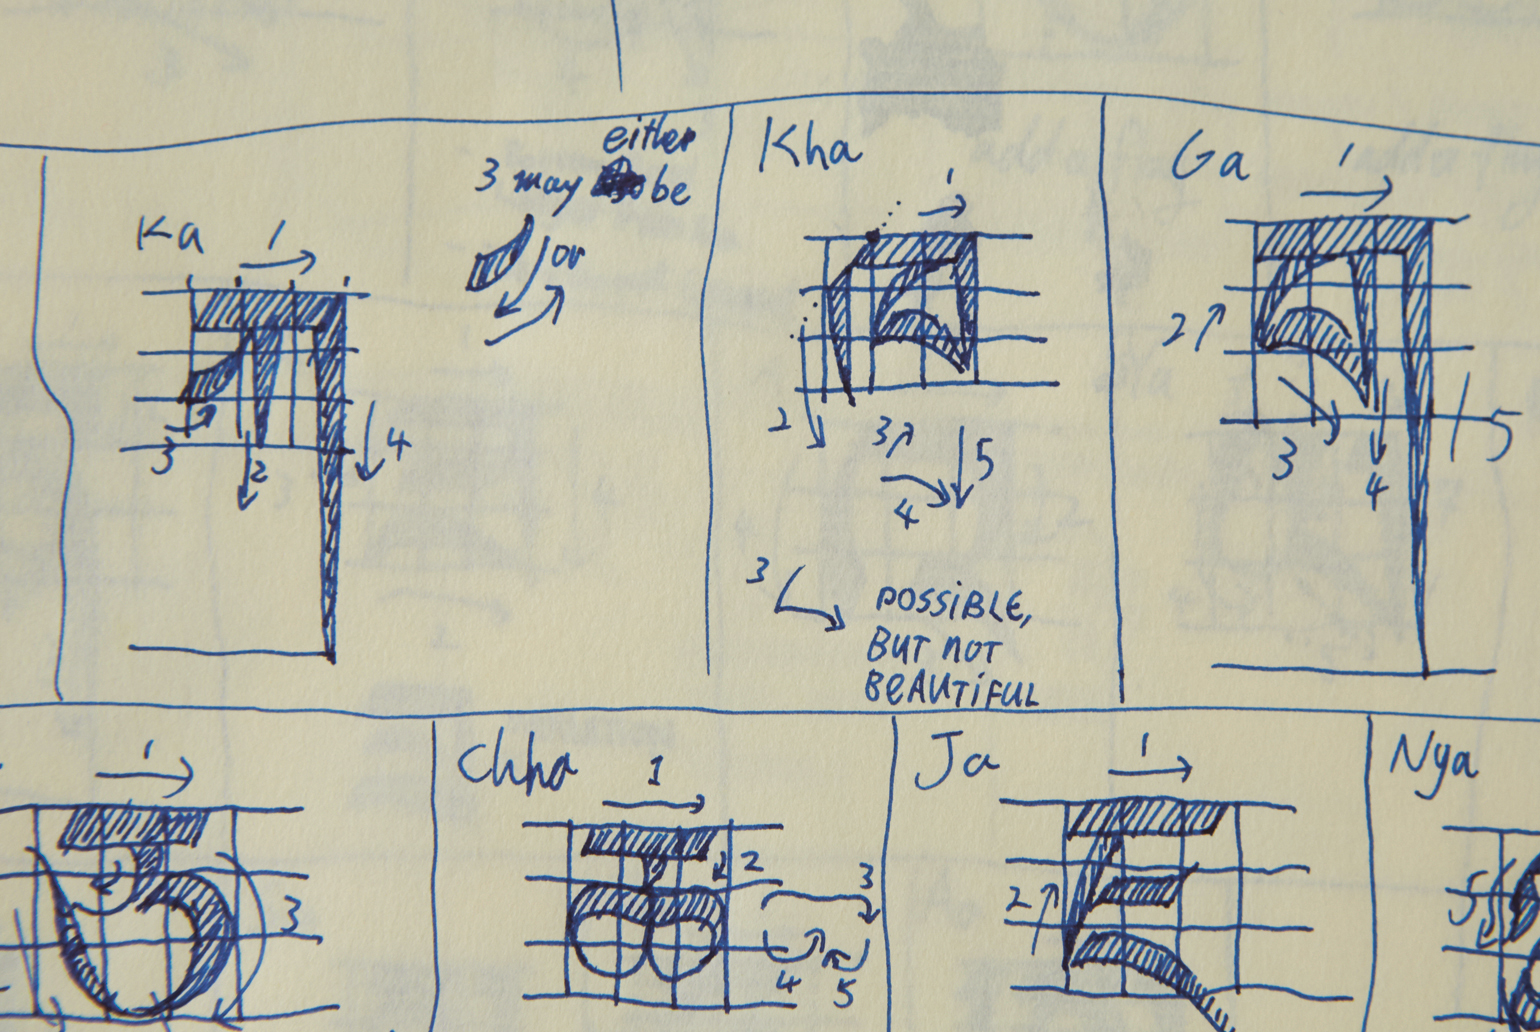 either
3 may be
or
Ka
1
3
2
4
Kha
1
2
3
4
5
3
POSSiBLE,
BUT NOT
BEAUTiFUL
Ga
1
2
3
4
5
1
2
3
Chha
1
2
3
4
5
Ja
1
2
Nya
5